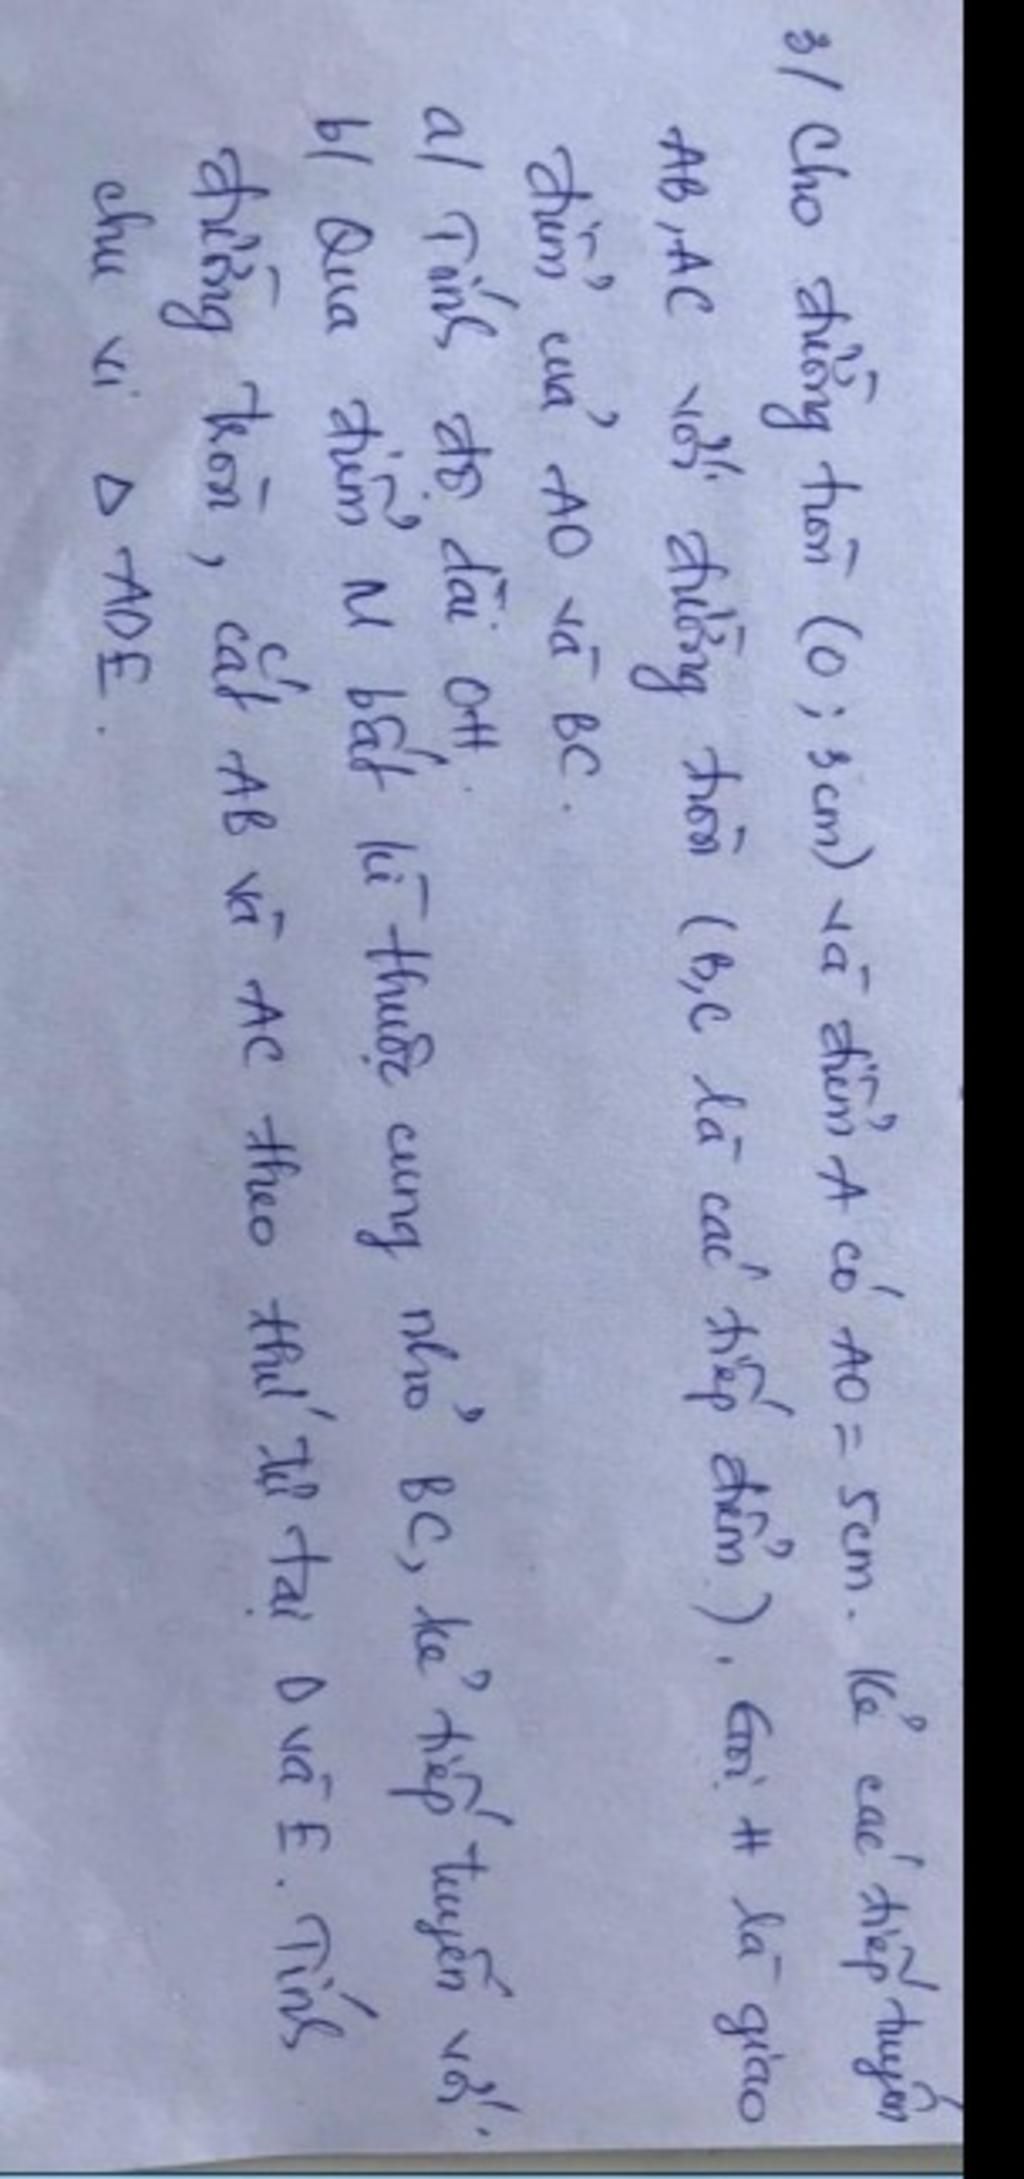 3/ Cho đường tròn (O; 3cm) và điểm A có AO = 5cm. Kẻ các tiếp tuyến
AB, AC với đường tròn (B,C là các tiếp điểm). Gọi H là giao
điểm của AO và BC.
a/ Tính độ dài OH.
b/ Qua điểm M bất kì thuộc cung nhỏ BC, kẻ tiếp tuyến với
đường tròn, cắt AB và AC theo thứ tự tại D và E. Tính
chu vi Δ ADE.